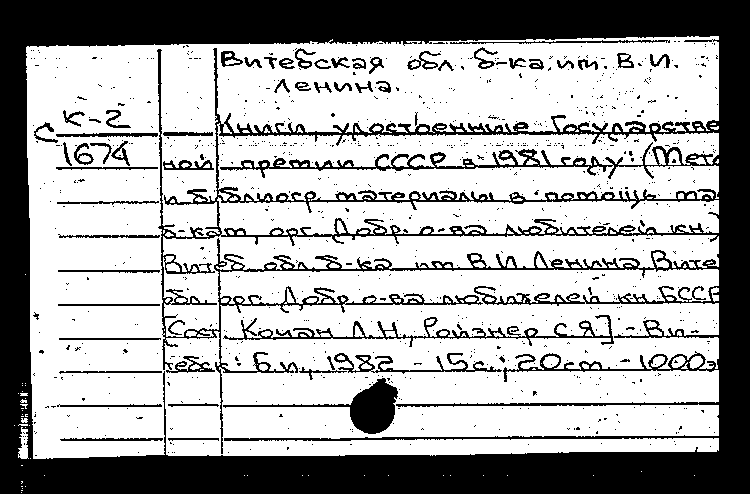 Витебская обл. б-ка им. В.И.
Ленина.
С К-2
1674
Книги, удостоенные Государстве
ной премии СССР в 1981 году: (Мето
и библиогр. материалы в помощь ма
б-кам, орг. Добр. о-ва любителей кн.)
Витеб. обл. б-ка им. В.И. Ленина, Вите
обл. орг. Добр. о-ва любителей кн. БССР
[Сост. Коман Л.Н., Ройзнер С.Я.] - Ви-
тебск: Б.и., 1982 - 15с.; 20см. - 1000э